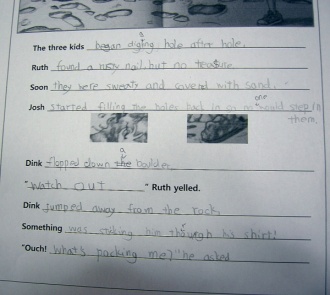 The three kids began diging hole after hole.
Ruth found a rusty nail, but no teasure.
Soon they were sweaty and coverd with sand.
Josh started filling the holes back in so no one would step in them.
Dink flopped down a boulder
"Watch out" Ruth yelled.
Dink jumped away from the rock
Something was stiking him through his shirt!
"Ouch! what's pocking me?" he asked